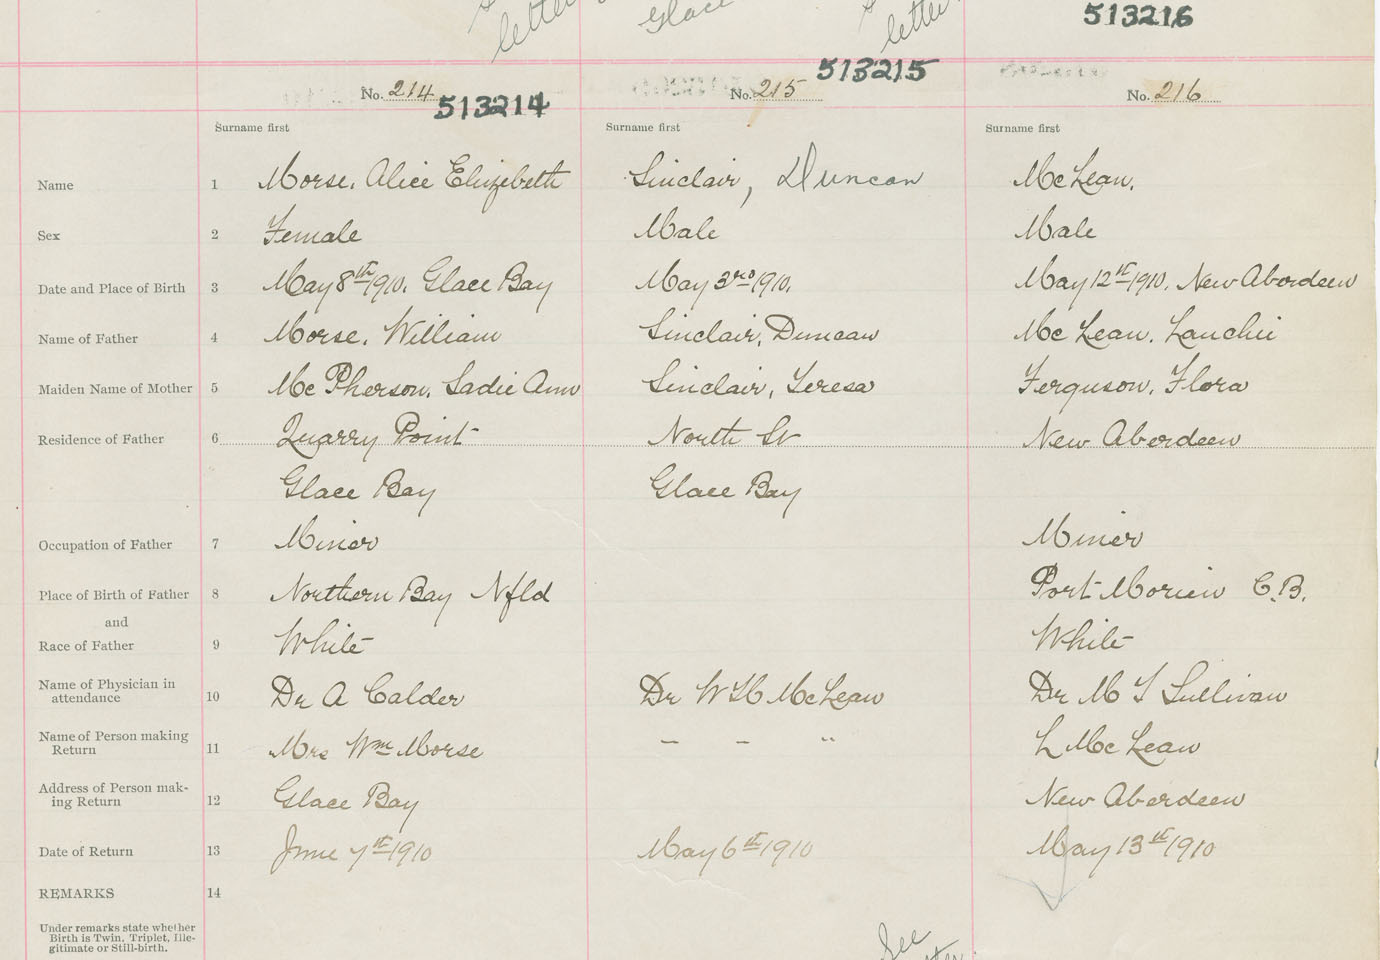 letter
Glace
letter
513216
No. 214
513214
No. 215
513215
No. 216
Surname first
Surname first
Surname first
Name 1 Morse, Alice Elizebeth
Sinclair, Duncan
McLean,
Sex 2 Female
Male
Male
Date and Place of Birth 3 May 8th 1910, Glace Bay
May 3rd 1910,
May 12th 1910, New Aberdeen
Name of Father 4 Morse, William
Sinclair, Duncan
McLean, Lauchie
Maiden Name of Mother 5 McPherson, Sadie Ann
Sinclair, Teresa
Ferguson, Flora
Residence of Father 6 Quarry Point
North St
New Aberdeen
Glace Bay
Glace Bay
Occupation of Father 7 Miner
Miner
Place of Birth of Father 8 Northern Bay Nfld
Port Morien C.B.
and
Race of Father 9 White
White
Name of Physician in
attendance 10 Dr A Calder
Dr W H McLean
Dr M T Sullivan
Name of Person making
Return 11 Mrs Wm Morse
– – "
L McLean
Address of Person mak-
ing Return 12 Glace Bay
New Aberdeen
Date of Return 13 June 7th 1910
May 6th 1910
May 13th 1910
REMARKS 14
Under remarks state whether
Birth is Twin, Triplet, Ille-
gitimate or Still-birth.
See